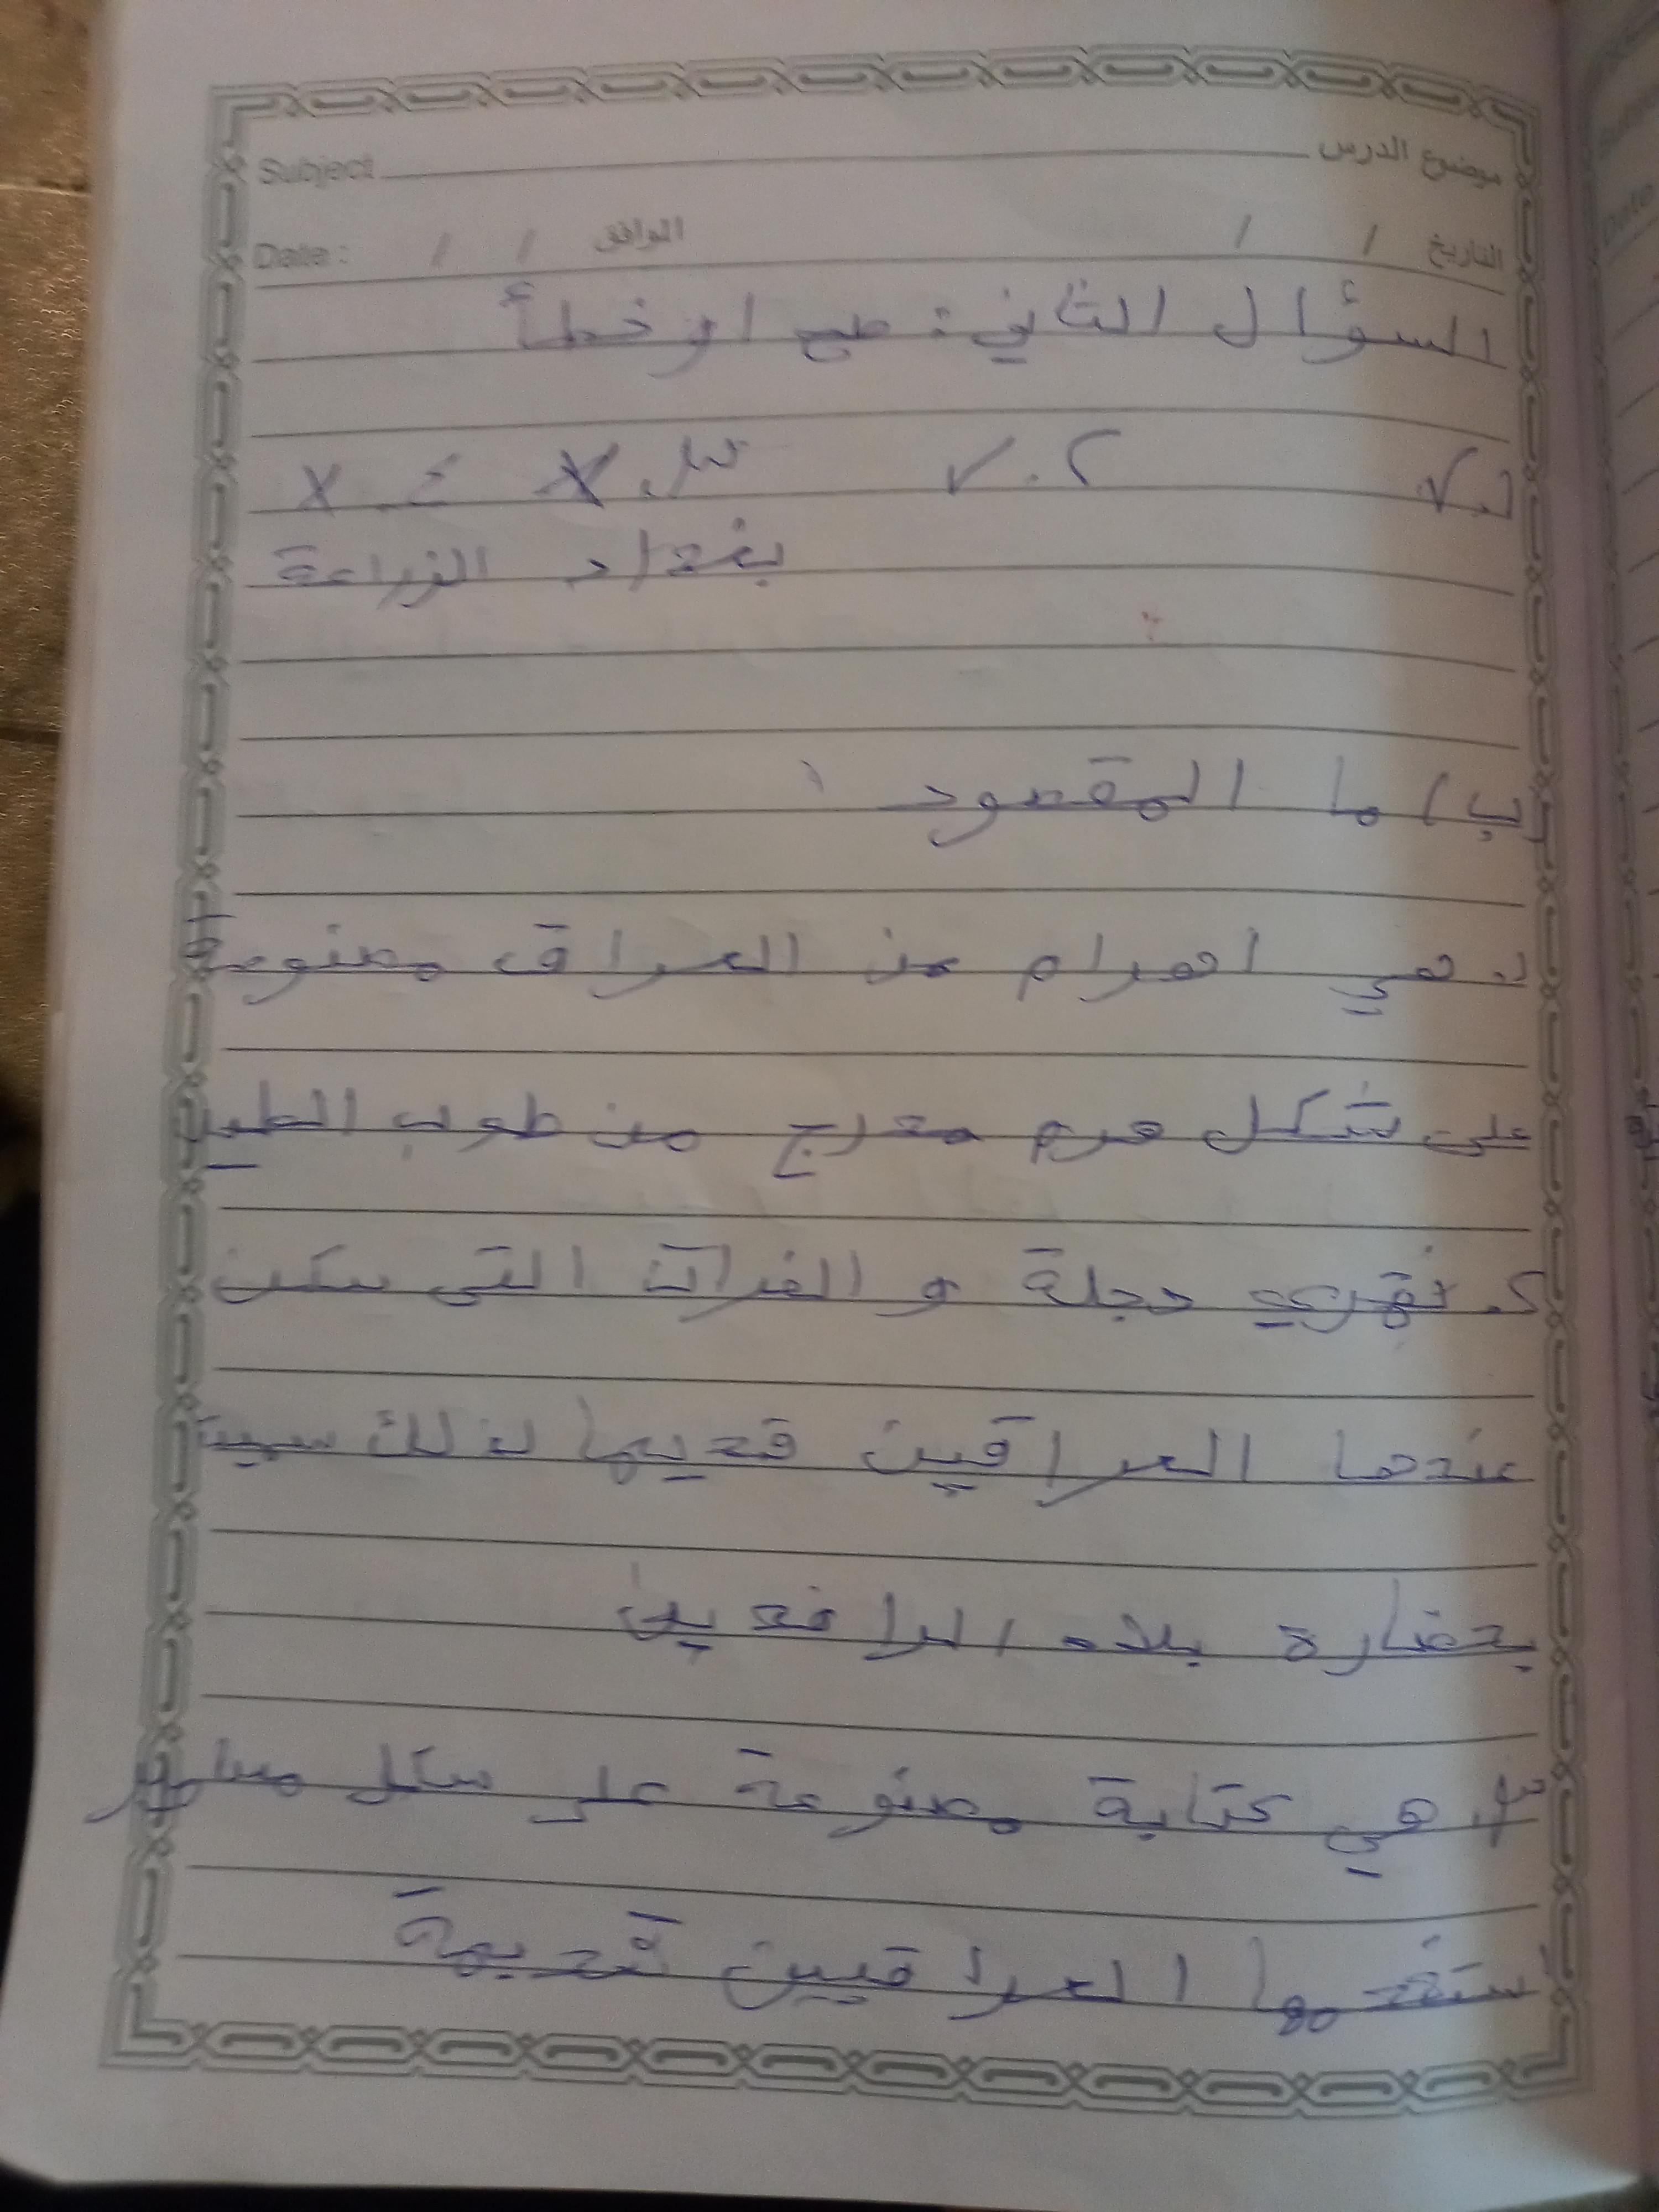 موضوع الدرس Subject
التاريخ / / الموافق / / Date :
السؤال الثاني: صح او خطأ
١. ✓ ٢. ✓ ٣. X ٤. X
بغداد الزراعة
ب) ما المقصود
١. هي اهرام من العراق مصنوعة
على شكل هرم مدرج من طوب الطين
٢. نهري دجلة و الفرات التي سكن
عندها العراقين قديما لذلك سميت
بحضارة بلاد الرافدين
٣. هي كتابة مصنوعة على شكل مسامير
ستخدمها العراقيين قديمة